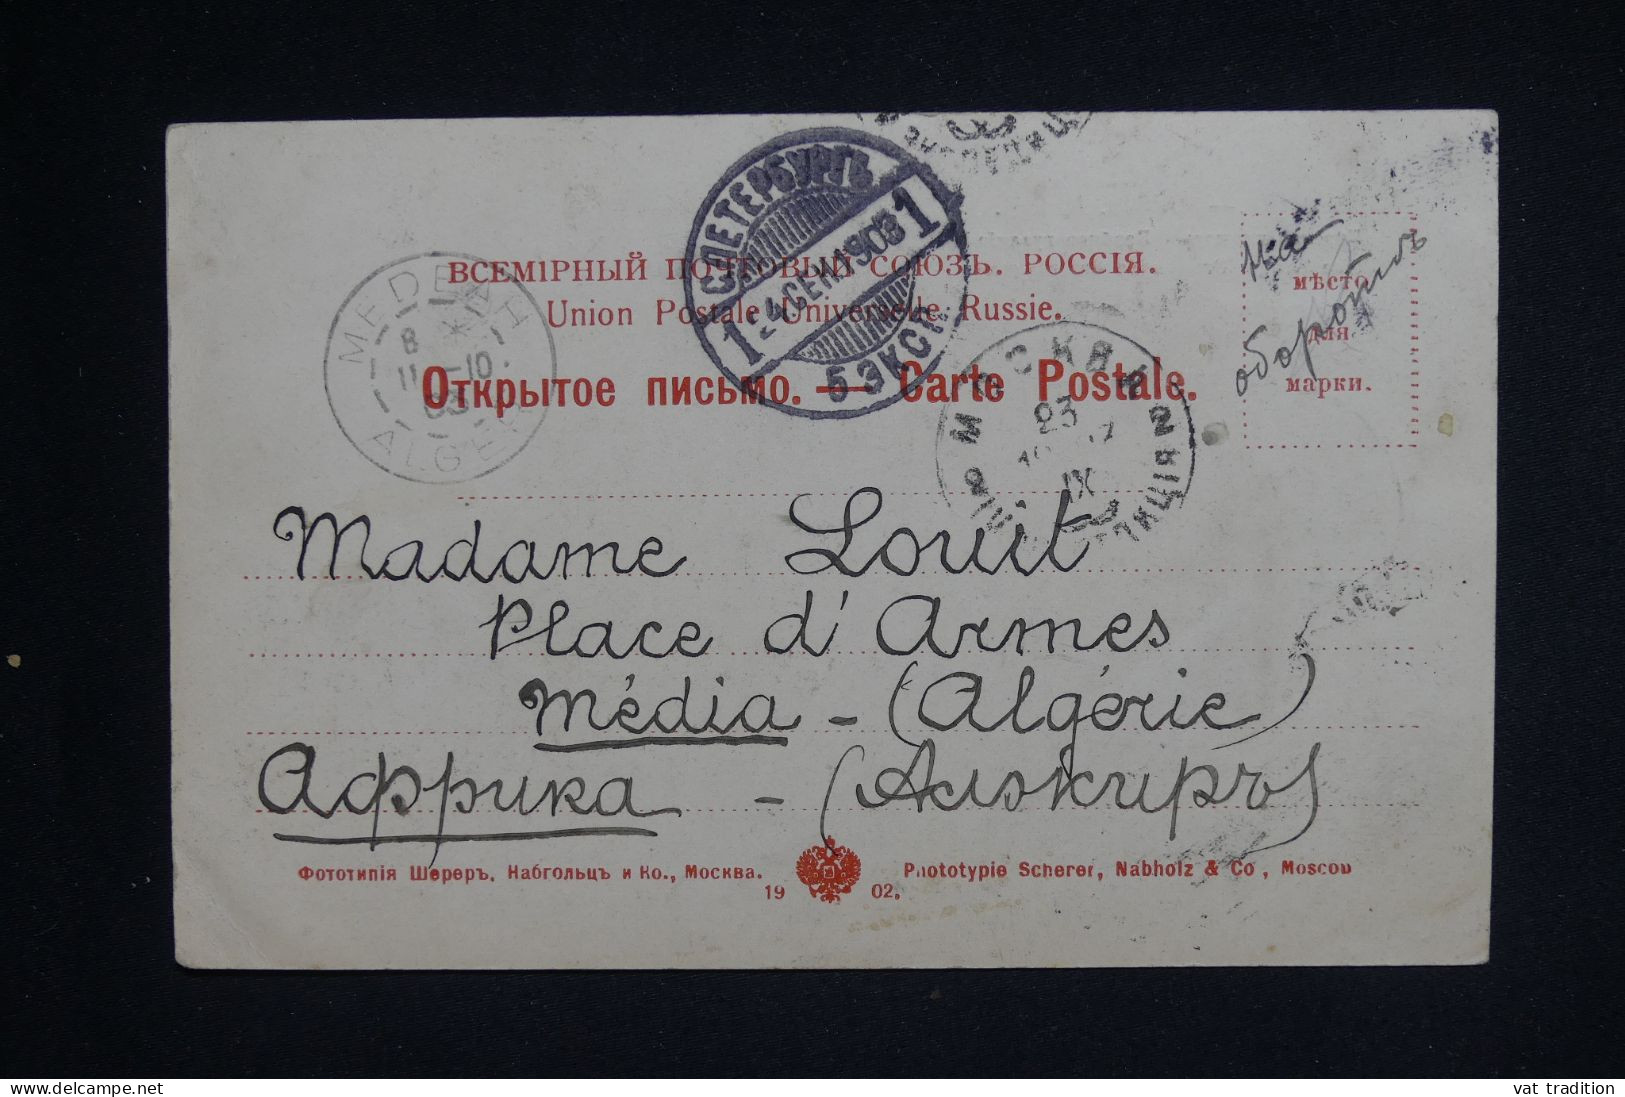 С ПЕТЕРБУРГЪ
1 24 СЕН 1903 1
5 ЭКСП
ВСЕМІРНЫЙ ПОЧТОВЫЙ СОЮЗЪ. РОССІЯ.
Union Postale Universelle Russie.
Открытое письмо. — Carte Postale.
MEDEAH
8
11 -10
03
ALGER
МОСКВА
23
IX
мѣсто
для
марки.
На
оборотѣ
Madame Louit
Place d'Armes
Média - (Algérie)
Аффрика - (Алжиръ)
Фототипія Шереръ, Набгольцъ и Ко., Москва.
19 02.
Phototypie Scherer, Nabholz & Co, Moscou
www.delcampe.net
vat tradition